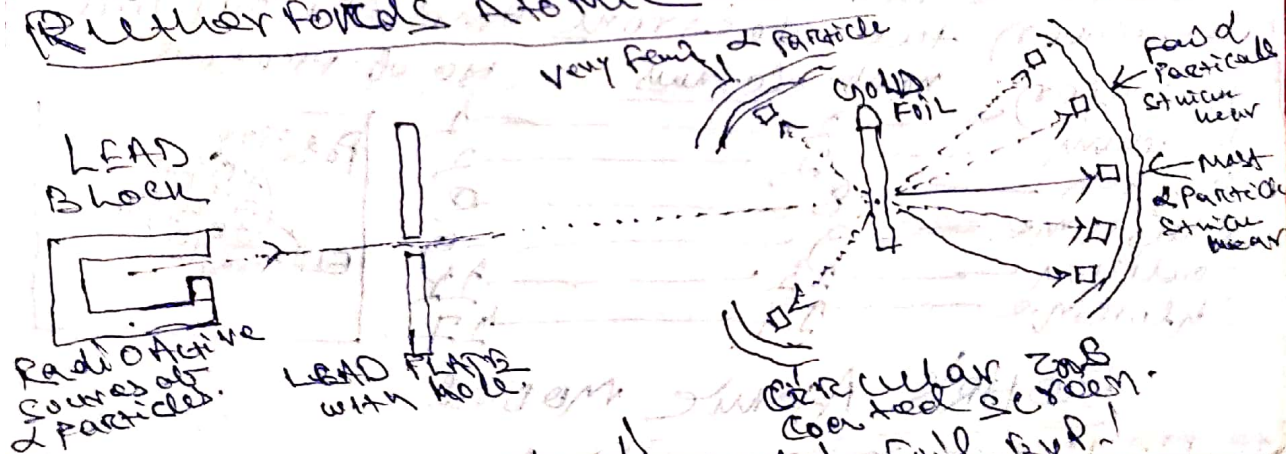 Rutherfords Atomic
very few α Particle
GOLD
FOIL
Few α
Particals
Stricu
near
Most
α Particle
Stricu
near
LEAD
Block
Radio Active
Sources of
α particles.
LEAD PLATE
with Hole.
Circular ZnS
Coated Screen.
Foil Exp.